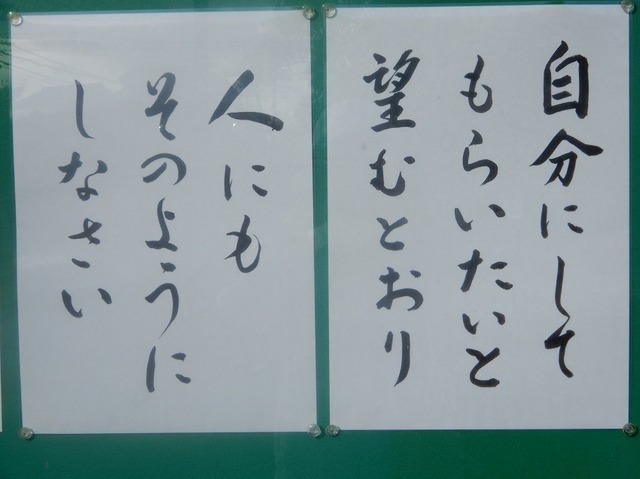 自分にして
もらいたいと
望むとおり
人にも
そのように
しなさい